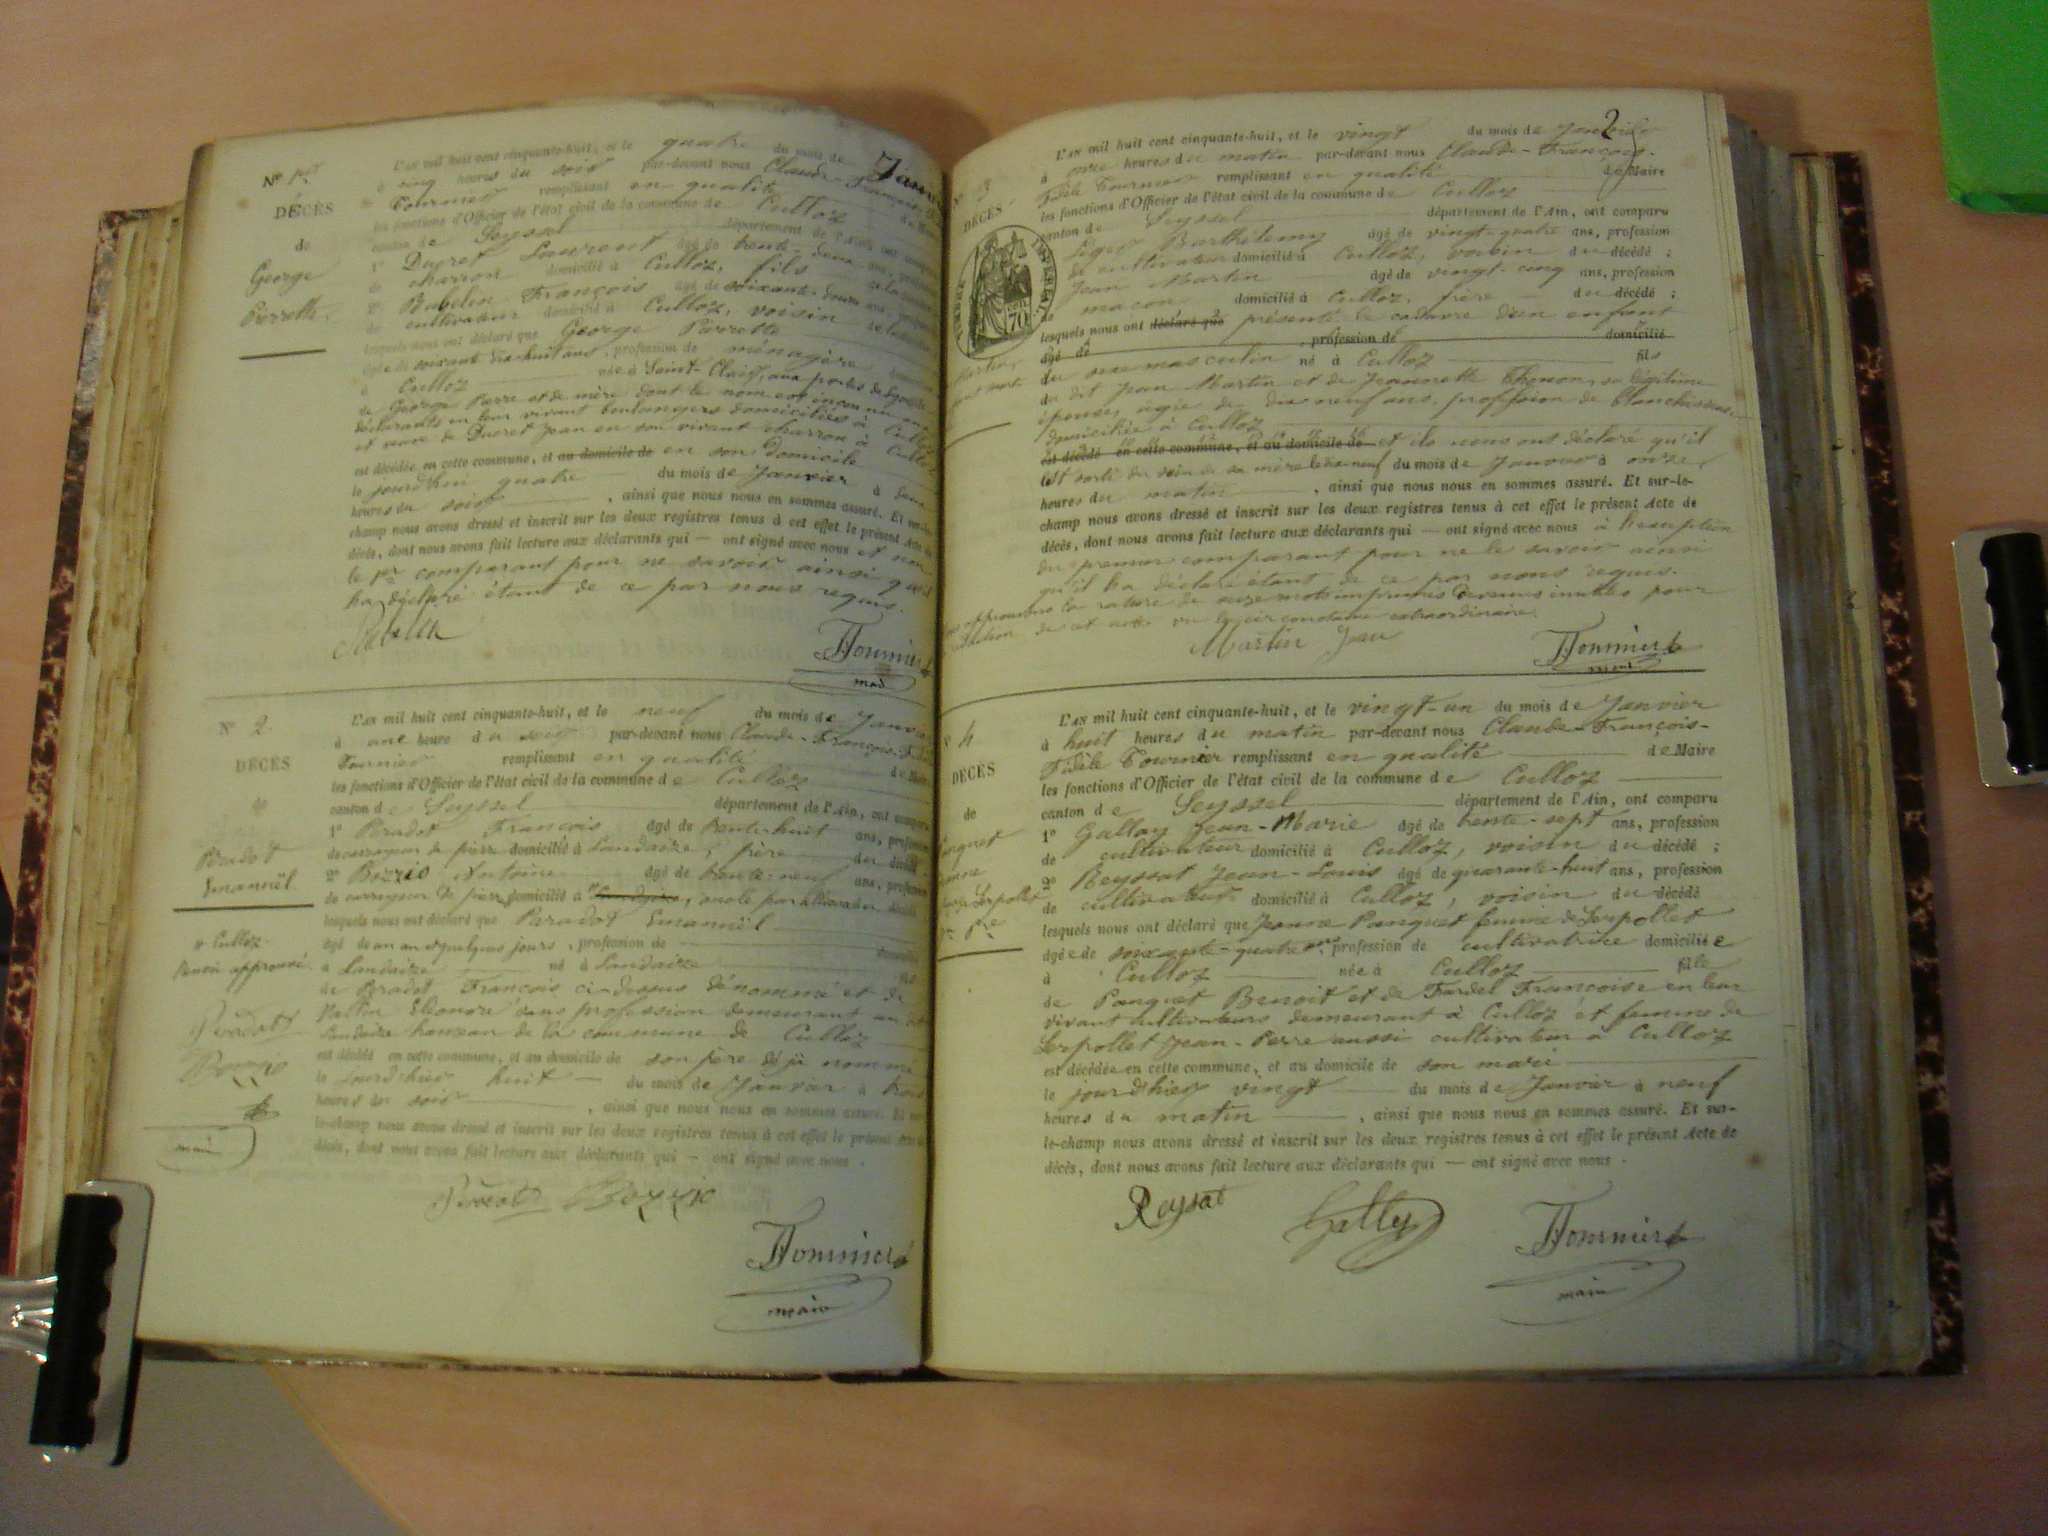 Nº 1er
DÉCÈS
de
George
Pierrette.
L'AN mil huit cent cinquante-huit, et le quatre du mois de Janv
à cinq heures du soir par-devant nous Claude-François
Tournier remplissant en qualité
les fonctions d'Officier de l'état civil de la commune de Culloz
canton de Seyssel département de l'Ain, ont comparu
1º Ducret Laurent âgé de trente-deux ans,
de charron domicilié à Culloz, fils
2º Babelin François âgé de soixante-douze ans,
de cultivateur domicilié à Culloz, voisin
lesquels nous ont déclaré que George Pierrette
âgée de soixant dix-huit ans, profession de ménagère
à Culloz née à Saint-Clair, aux portes de Lyon
de George Pierre et de mère dont le nom est inconnu aux
déclarants en leur vivant boulangers domiciliés à Culloz
et veuve de Ducret Jean en son vivant charron à Culloz
est décédée en cette commune, et au domicile de en son domicile
le jourd'hui quatre du mois de Janvier à
heures du soir, ainsi que nous nous en sommes assuré. Et sur-le-
champ nous avons dressé et inscrit sur les deux registres tenus à cet effet le présent Acte de
décès, dont nous avons fait lecture aux déclarants qui — ont signé avec nous et non
le 1er comparant pour ne savoir ainsi qu'il
l'a déclaré étant de ce par nous requis.
Babelin
Tournier
Nº 2
DÉCÈS
de
Pradot
Emanuël.
à Culloz
Renvoi approuvé.
Pradot
Bozzio
maire
L'AN mil huit cent cinquante-huit, et le neuf du mois de Janvier
à une heure du soir par-devant nous Claude-François-Fidèle
Tournier remplissant en qualité de Maire
les fonctions d'Officier de l'état civil de la commune de Culloz
canton de Seyssel département de l'Ain, ont comparu
1º Pradot François âgé de trente-huit ans, profession
de carrayeur de pierre domicilié à Landaize, père du décédé
2º Bozzio Antoine âgé de trente-neuf ans, profession
de carrayeur de pierre domicilié à, oncle par alliance du décédé
lesquels nous ont déclaré que Paradot Emanuël
âgé de un an et quelques jours, profession de domicilié
à Landaize né à Landaize fils
de Pradot François ci-dessus dénommé et de
Eléonore sans profession demeurant au dit
Landaize hameau de la commune de Culloz
est décédé en cette commune, et au domicile de son père déjà nommé
le jourd'hier huit du mois de Janvier à trois
heures du soir, ainsi que nous nous en sommes assuré. Et sur-
le-champ nous avons dressé et inscrit sur les deux registres tenus à cet effet le présent Acte de
décès, dont nous avons fait lecture aux déclarants qui — ont signé avec nous.
Pradot Bozzio
Tournier
maire
2
Nº 3
DÉCÈS
TIMBRE IMPÉRIAL
70
Martin,
L'AN mil huit cent cinquante-huit, et le vingt du mois de Janvier
à onze heures du matin par-devant nous Claude-François-
Fidèle Tournier remplissant en qualité de Maire
les fonctions d'Officier de l'état civil de la commune de Culloz
canton de Seyssel département de l'Ain, ont comparu
Barthélemy âgé de vingt-quatre ans, profession
de cultivateur domicilié à Culloz, voisin du décédé;
Jean Martin âgé de vingt-cinq ans, profession
de maçon domicilié à Culloz, père du décédé;
lesquels nous ont déclaré que présenté le cadavre d'un enfant
âgé de profession de domicilié
du sexe masculin né à Culloz fils
du dit Jean Martin et de Jeannette Thenon, sa légitime
épouse, âgée de dix neuf ans, profession de blanchisseuse
domiciliée à Culloz
est décédé en cette commune, et au domicile de et ils nous ont déclaré qu'il
est sorti du sein de sa mère du mois de Janvier à onze
heures du matin, ainsi que nous nous en sommes assuré. Et sur-le-
champ nous avons dressé et inscrit sur les deux registres tenus à cet effet le présent Acte de
décès, dont nous avons fait lecture aux déclarants qui — ont signé avec nous à l'exception
du premier comparant pour ne le savoir ainsi
qu'il l'a déclaré étant de ce par nous requis.
approuvons la rature de onze mots imprimés dessus inutiles pour
rédaction de cet acte vu la circonstance extraordinaire.
Martin Jean
Tournier
maire
4
DÉCÈS
de
L'AN mil huit cent cinquante-huit, et le vingt-un du mois de Janvier
à huit heures du matin par-devant nous Claude-François-
Fidèle Tournier remplissant en qualité de Maire
les fonctions d'Officier de l'état civil de la commune de Culloz
canton de Seyssel département de l'Ain, ont comparu
1º Gallay Jean-Marie âgé de trente-sept ans, profession
de cultivateur domicilié à Culloz, voisin du décédé;
2º Reyssat Jean-Louis âgé de quarante-huit ans, profession
de cultivateur domicilié à Culloz, voisin du décédé
lesquels nous ont déclaré que Jeanne Panguet femme de Serpollet
âgée de soixante-quatre ans profession de cultivatrice domiciliée
à Culloz née à Culloz fille
de Panguet Benoit et de Tardel Françoise en leur
vivant cultivateurs demeurant à Culloz et femme de
Serpollet Jean-Pierre aussi cultivateur à Culloz
est décédée en cette commune, et au domicile de son mari
le jourd'hier vingt du mois de Janvier à neuf
heures du matin, ainsi que nous nous en sommes assuré. Et sur-
le-champ nous avons dressé et inscrit sur les deux registres tenus à cet effet le présent Acte de
décès, dont nous avons fait lecture aux déclarants qui — ont signé avec nous.
Reyssat Gallay Tournier
maire